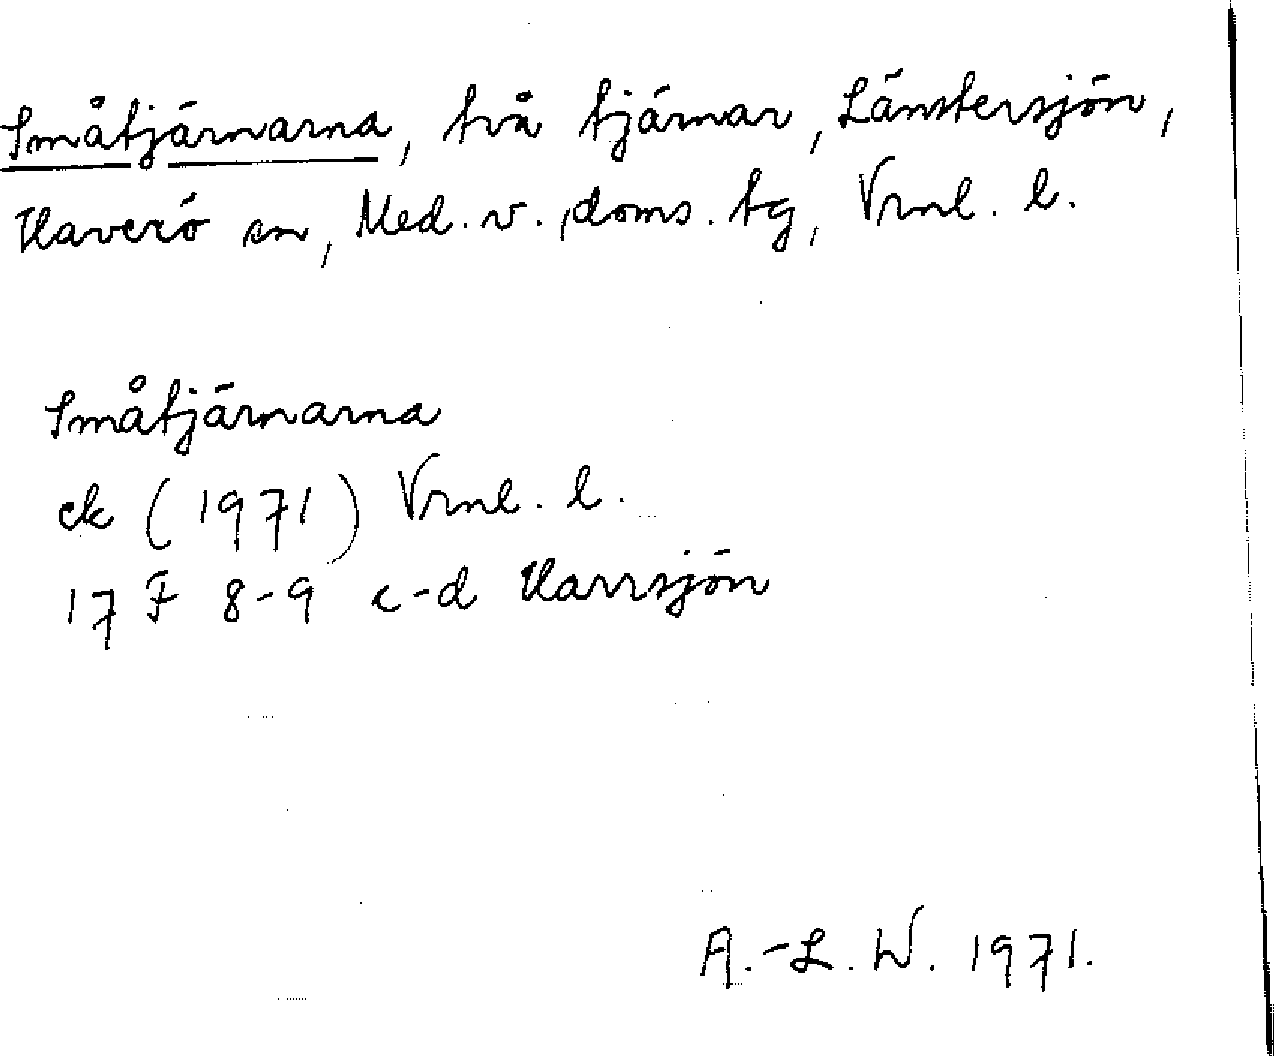 Småtjärnarna, två tjärnar, Länstersjön,
Haverö sn, Med. v. doms. tg, Vrnl. l.
Småtjärnarna
ek (1971) Vrnl. l.
17 F 8-9 c-d Harrsjön
A.-L. W. 1971.